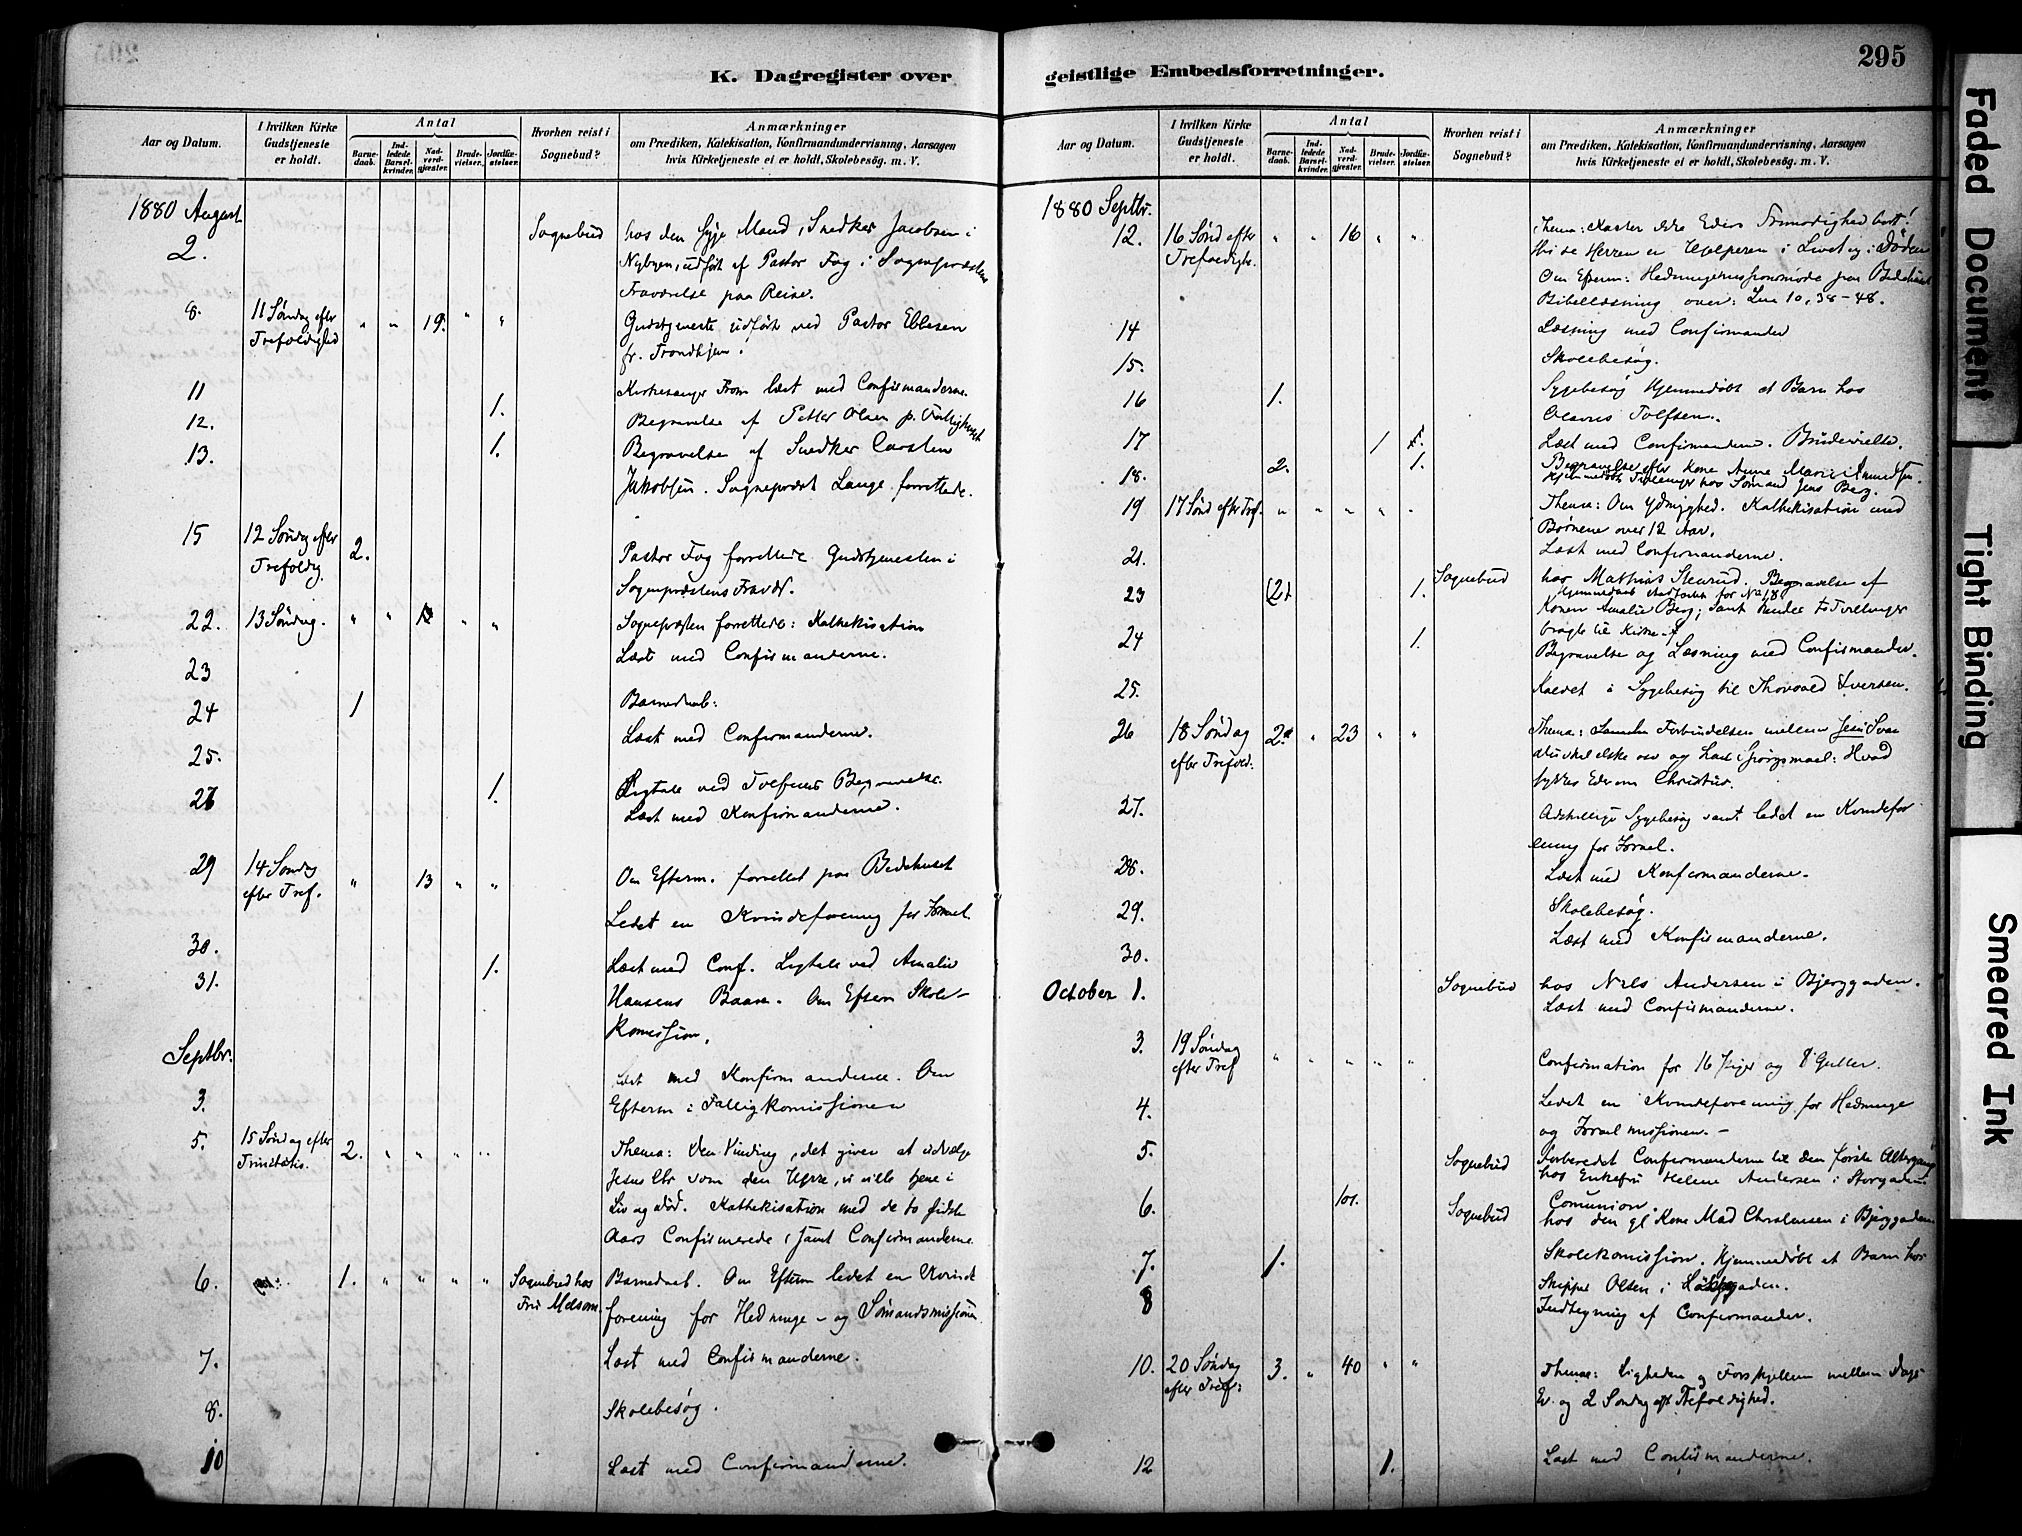 295
K. Dagregister over
Aar og Datum.
I hvilken Kirke
Gudstjeneste
er holdt.
Antal
Barne-
daab.
Ind-
ledede
Barsel-
kvinder.
Nad-
verd-
gjæster.
Brude-
vielser.
Jordfæ-
stelser.
Hvorhen reist i
Sognebud?
Anmærkninger
om Prædiken, Katekisation, Konfirmandundervisning, Aarsagen
hvis Kirketjeneste ei er holdt, Skolebesøg. m. V.
1880 August
2. Sognebud hos den syge Mand, Snedker Jacobsen i
Nybyen, udført af Pastor Fog i Sognepræstens
Fraværelse paa Reise.
8. 11 Søndag efter " " 19. " " Gudstjeneste udført ved Pastor Ebbesen
Trefoldighed fr. Trondhjem.
11 Kirkesanger From læst med Confirmanderne.
12. 1. Begravelse af Petter Olsen p.
13. 1. Begravelse af Snedker Carsten
Jakobsen. Sognepræst Lange forrettede.
15 12 Søndg efter 2.
Trefoldig. Pastor Fog forrettede Gudstjenesten i
Sognepræstens Fravær.
22. 13 Søndag. " " " " Sognepræsten forrettede: Kathekisation
23 Læst med Confirmanderne.
24 1 Barnedaab:
25. Læst med Confirmanderne.
27 1. Ligtale ved Begravelse.
Læst med Konfirmanderne.
29 14 Søndag " 13 " " Om Efterm. forrettet paa Bedehuset
efter Tref.
30. Ledet en Kvindeforening for Israel.
31. 1. Læst med Conf. Ligtale ved Amalie
Hansens Baare. Om Efterm Skole-
Komission.
Septbr.
3. Læst med Konfirmanderne. Om
Efterm i Fattigkomissionen
5. 15 Søndag efter 2. " " " " Thema: Den Vinding, det giver at udvælge
Trinitatis. Jesus Chr som den Herre, vi ville tjene i
Liv og Død. Kathekisation med de to sidste
Aars Confirmerede, samt Confirmanderne.
6. 1. " " " " Sognebud hos Barnedaab. Om Efterm ledet en Kvinde
Fru Melsom. forening for Hedninge- og Sømandsmissionen
7. Læst med Confirmanderne.
8. Skolebesøg.
10 Læst med Confirmanderne.
geistlige Embedsforretninger.
Aar og Datum.
I hvilken Kirke
Gudstjeneste
er holdt.
Antal
Barne-
daab.
Ind-
ledede
Barsel-
kvinder.
Nad-
verd-
gjæster.
Brude-
vielser.
Jordfæ-
stelser.
Hvorhen reist i
Sognebud?
Anmærkninger
om Prædiken, Katekisation, Konfirmandundervisning, Aarsagen
hvis Kirketjeneste ei er holdt, Skolebesøg. m. V.
1880 Septbr.
12. 16 Sønd efter " " 16 " " Thema: Kaster ikke Eders Frimodighed bort!
Trefoldigh. thi se Herren er Hjælperen i Livet og i Døden
Om Efterm: Hedningemissionsmøde paa Bedehuset
Bibellæsning over: Luc 10, 38-48.
14 Læsning med Confirmander
15. Skolebesøg.
16 1. Sygebesøg Hjemmedøbt et Barn hos
Olaves Tolfsen.
17 1 Læst med Confirmanderne. Brudevielse.
18. 2. 1. Begravelse efter Kone Anne Marie
Hjemmedøbt Tvillinger hos Sømand Jens Berg.
19 17 Sønd efter Tref. " " " " " Thema: Om Ydmyghed. Kathekisation med
Børnene over 12 Aar.
21. Læst med Confirmanderne.
23 (2) 1. Sognebud hos Mathias Stenrud. Begravelse af
Hjemmedaab Stadfæstet for No 18
Konen Amalie Berg; samt hendes to Tvillinger
bragte til Kirke.
24 1. Begravelse og Læsning med Confirmander.
25. Kaldet i Sygebesøg til Thorvald Iversen.
26 18 Søndag 2 " 23 " " Thema: Forbindelsen mellem Jesu Svar
efter Trefold: du skal elske osv og hans Spørgsmaal: Hvad
tykkes Eder om Christus.
27. Adskillige Sygebesøg samt ledet en Kvindefor
ening for Israel.
28. Læst med Konfirmanderne.
29. Skolebesøg.
30. Læst med Konfirmanderne.
October 1. Sognebud hos Nils Andersen i Bjerggaden.
Læst med Confirmanderne.
3. 19 Søndag " " " " " Confirmation for 16 Piger og 8 Gutter.
efter Tref
4. Ledet en Kvindeforening for Hedninge
og Israel missionen. -
5. Sognebud Forberedet Confirmanderne til den første Altergang
hos Enkefru Helene Andersen i Storgaden.
6. 101. Sognebud Comunion.
hos den gl Kone Mad Christensen i Bjerggaden
7. 1. Skolekomission. Hjemmedøbt et Barn hos
8 Skipper Olsen i
Indtegning af Confirmander.
10. 20 Søndag 3. " 40 " " Thema: Ligheden og Forskjellen mellem Dags
efter Tref: Ev. og 2 Søndag eft Trefoldighed.
12 1. Læst med Confirmanderne.
Faded Document
Tight Binding
Smeared Ink